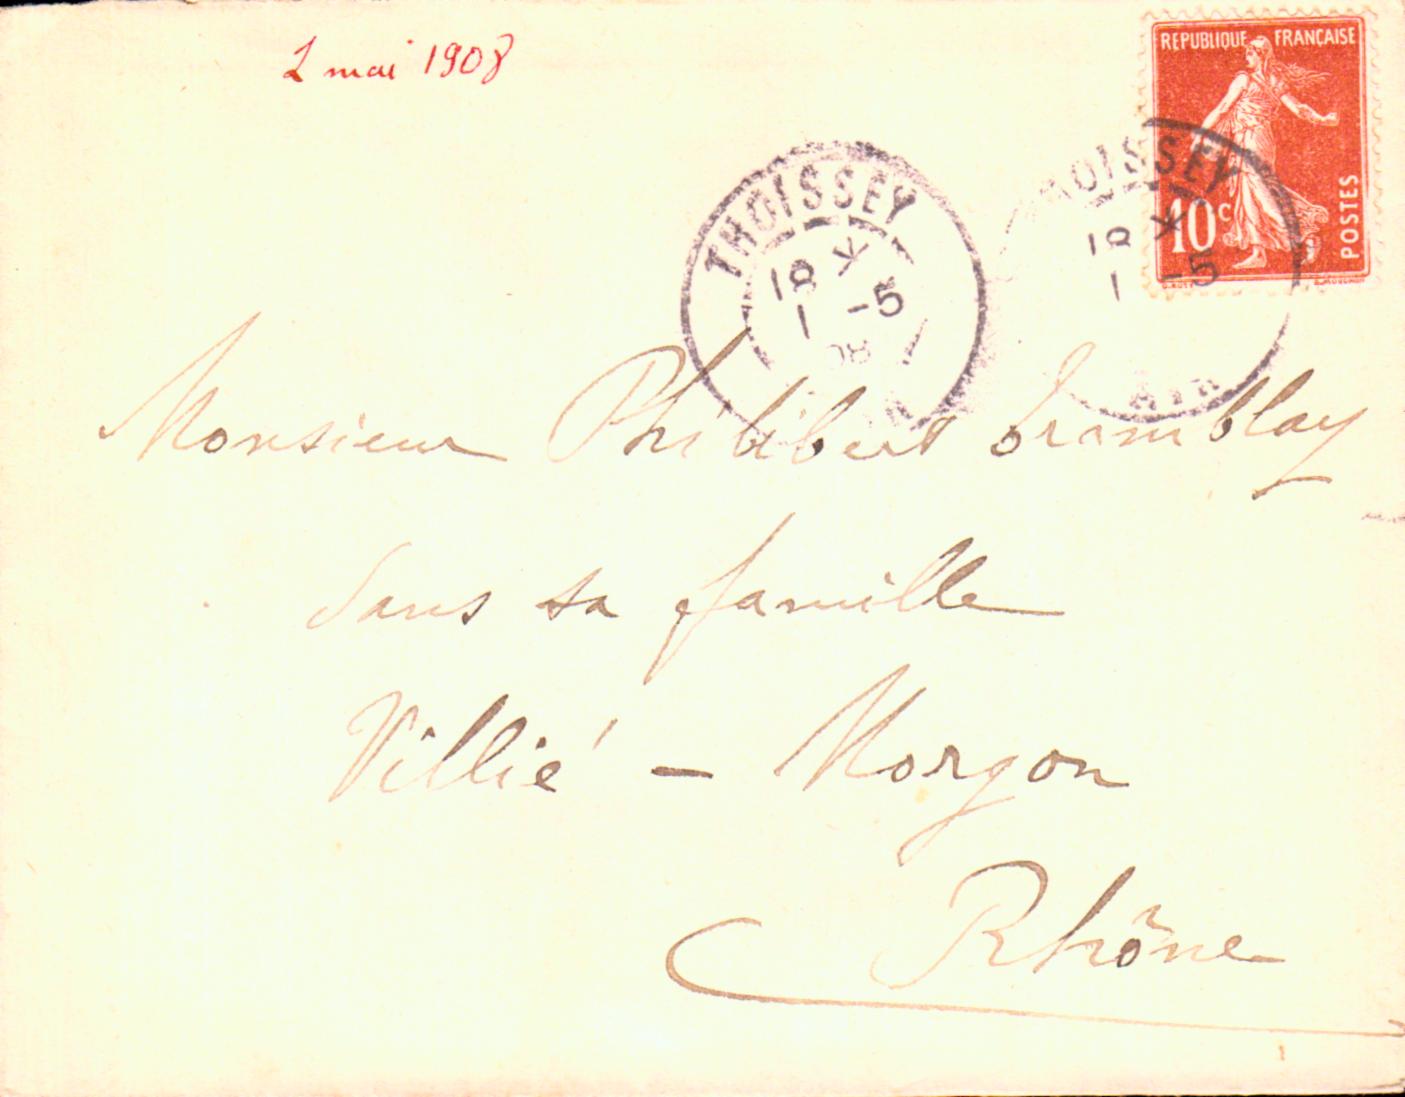 1 mai 1908
REPUBLIQUE FRANÇAISE
10c
POSTES
THOISSEY
18 *
1 -5
08
OISSEY
18 *
1 -5
AIN
Monsieur Philibert Tramblay
dans sa famille
Villié - Morgon
Rhône